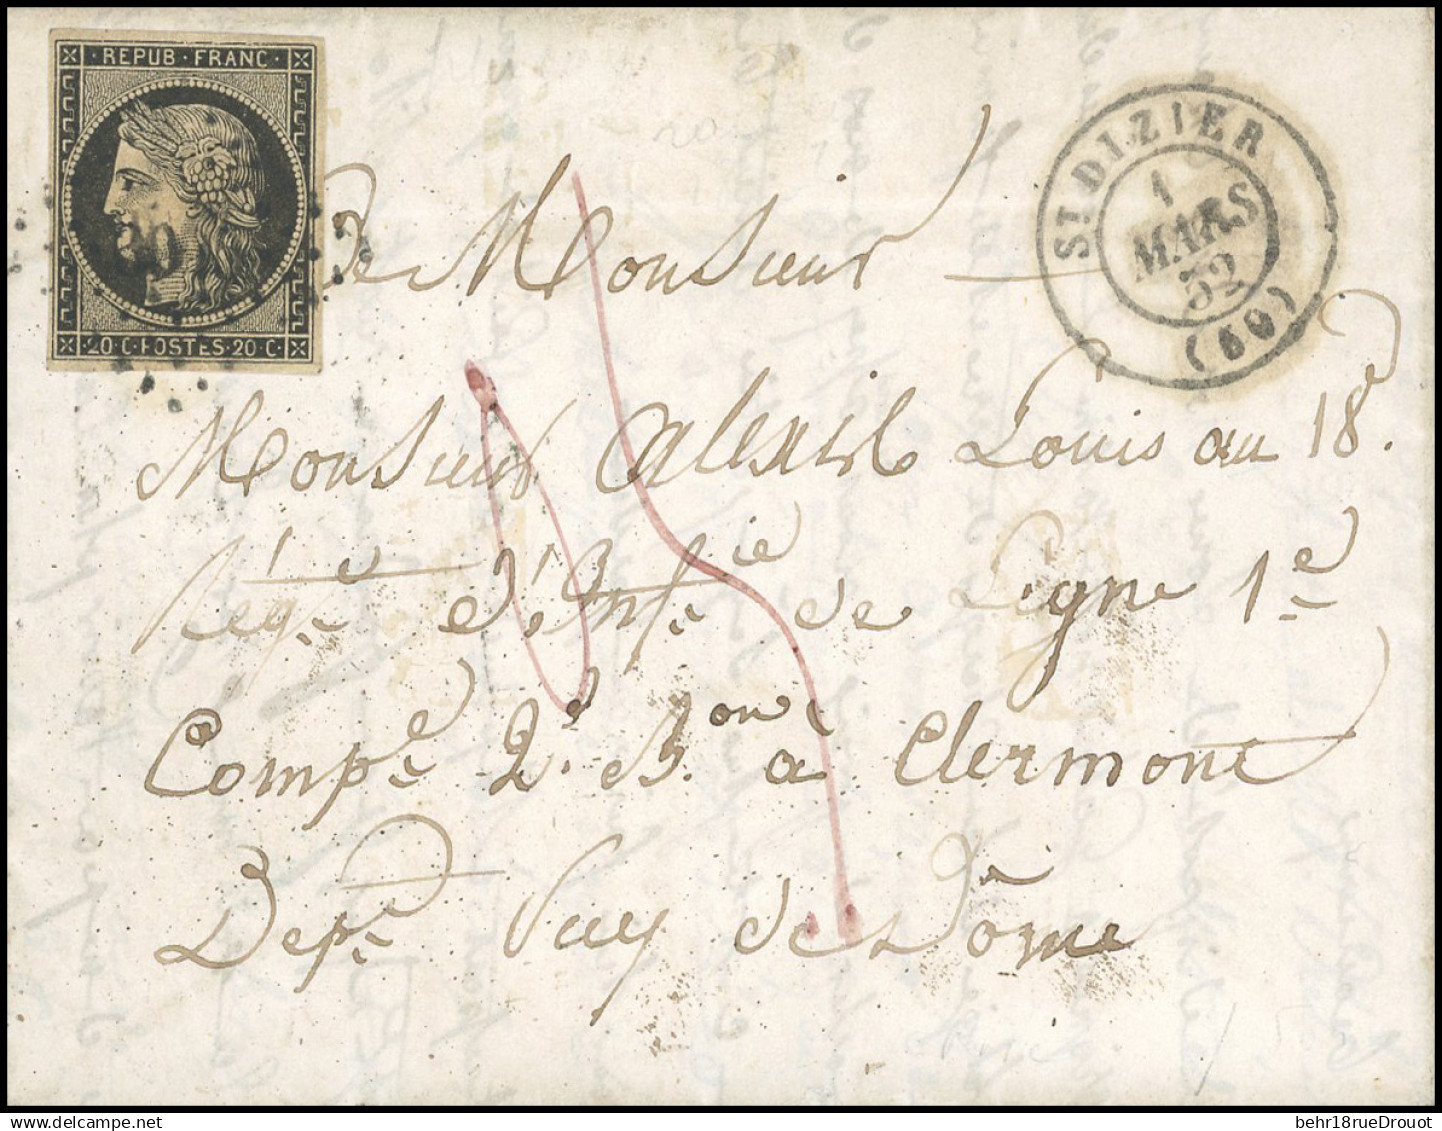 REPUB · FRANC ·
20 · C · POSTES · 20 · C ·
ST DIZIER
1
MARS
52
(50)
De Monsieur
Monsieur Alexis Louis au 18e.
Régt d'Infie de Ligne 1e
Compe 2e Bon à Clermont
Dept Puy de Dôme
behr18rueDrouot